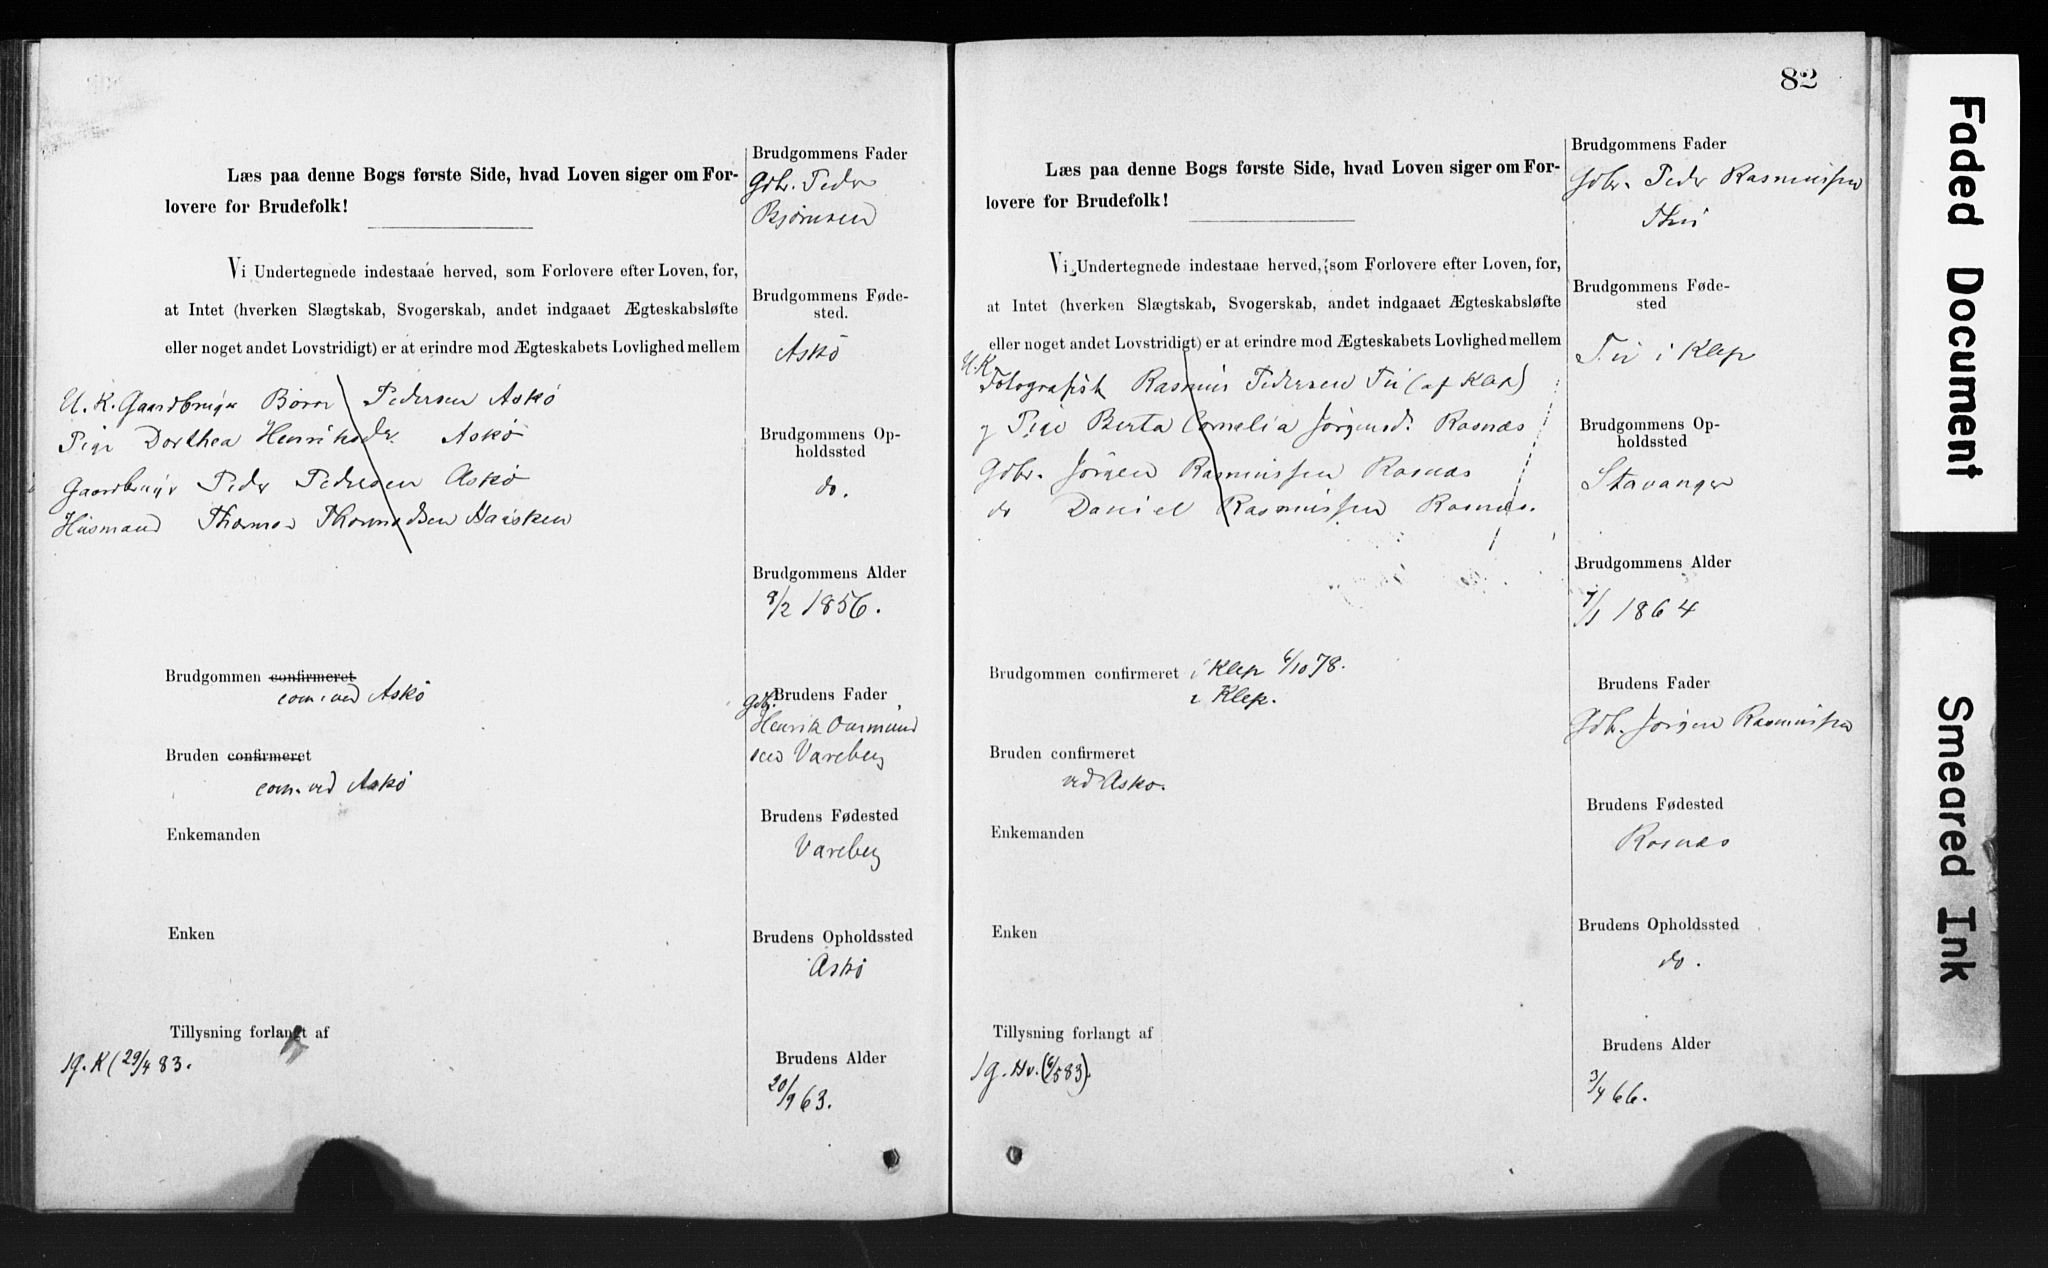 Læs paa denne Bogs første Side, hvad Loven siger om For-
lovere for Brudefolk!
Vi Undertegnede indestaae herved, som Forlovere efter Loven, for,
at Intet (hverken Slægtskab, Svogerskab, andet indgaaet Ægteskabsløfte
eller noget andet Lovstridigt) er at erindre mod Ægteskabets Lovlighed mellem
U. K. Gaardbruger Pedersen Askø
Pige Dorthea Henriksdr. Askø
Gaardbruger Peder Pedersen Askø
Husmand Thomas
Brudgommen confirmeret
com. ved Askø
Bruden confirmeret
com. ved Askø
Enkemanden
Enken
Tillysning forlangt af
1g. K (29/4 83.
Brudgommens Fader
Gdbr. Peder
Bjørnsen
Brudgommens Føde-
sted.
Askø
Brudgommens Op-
holdssted
do.
Brudgommens Alder
8/2 1856.
Brudens Fader
Gdbr.
Henrik
Vareberg
Brudens Fødested
Vareberg
Brudens Opholdssted
Askø
Brudens Alder
20/9 63.
82
Læs paa denne Bogs første Side, hvad Loven siger om For-
lovere for Brudefolk!
Vi Undertegnede indestaae herved, som Forlovere efter Loven, for,
at Intet (hverken Slægtskab, Svogerskab, andet indgaaet Ægteskabsløfte
eller noget andet Lovstridigt) er at erindre mod Ægteskabets Lovlighed mellem
U. K. Fotografist Rasmus Pedersen Tu (af Klep)
g Pige Berta Cornelia Jørgensd. Rosnæs
Gdbr. Jörgen Rasmussen Rosnæs
do Daniel Rasmussen Rosnæs.
Brudgommen confirmeret i Klep 6/10 78.
i Klep.
Bruden confirmeret
ved Askø.
Enkemanden
Enken
Tillysning forlangt af
1g. Hv. (6/5 83).
Brudgommens Fader
Gdbr. Peder Rasmussen
Thu
Brudgommens Føde-
sted
Tu i Klep
Brudgommens Op-
holdssted
Stavanger
Brudgommens Alder
7/1 1864
Brudens Fader
Gdbr. Jörgen Rasmussen
Brudens Fødested
Rosnæs
Brudens Opholdssted
do.
Brudens Alder
3/4 66.
Faded Document
Smeared Ink